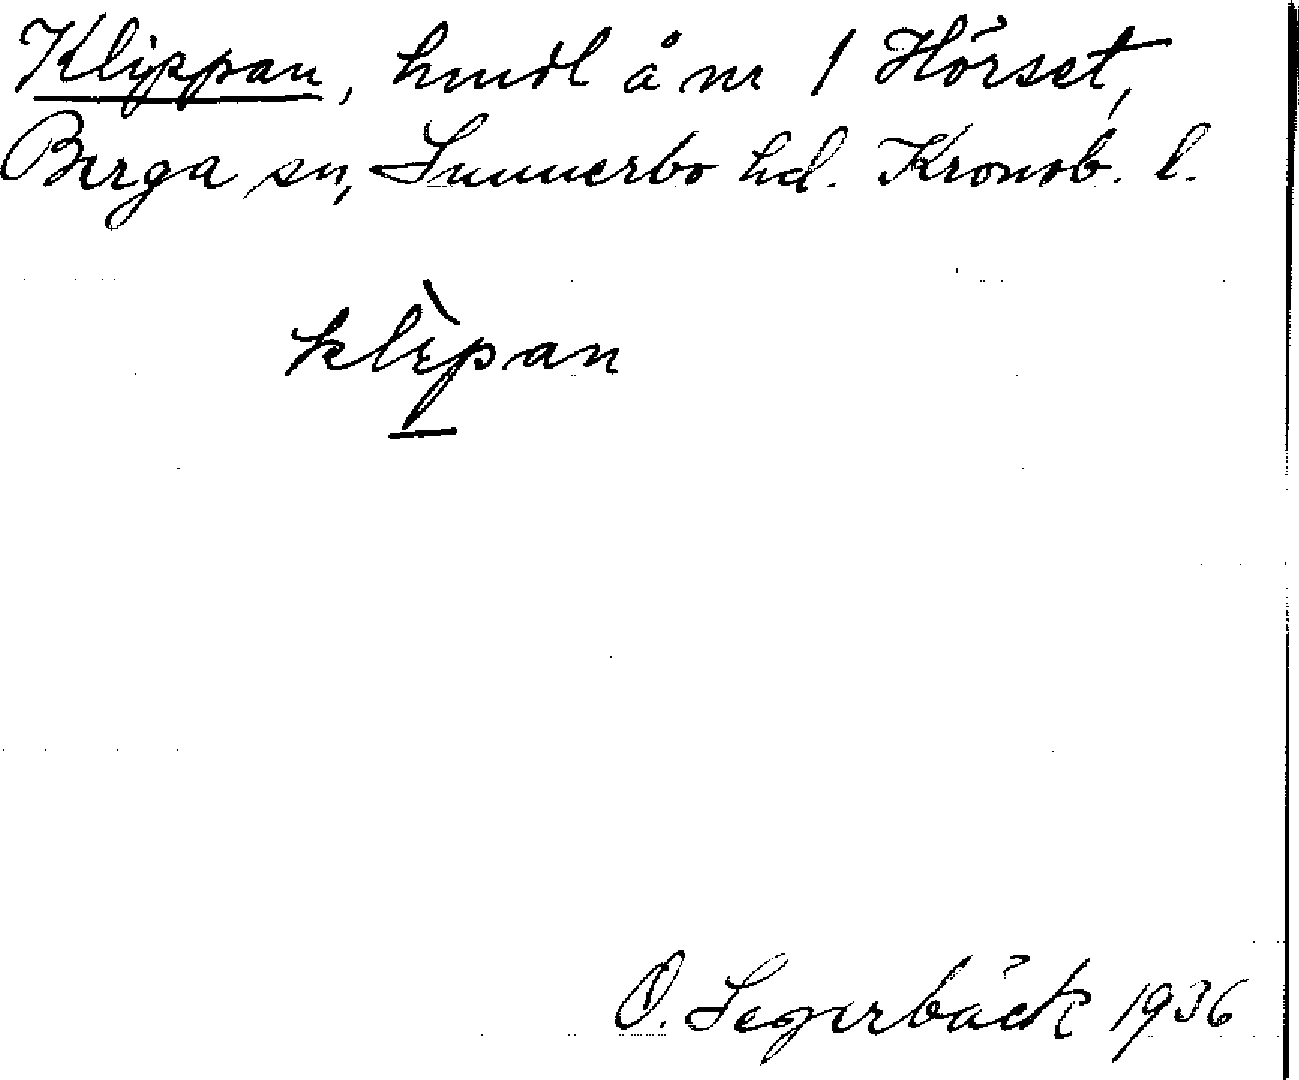 Klippan, hmdl å nr 1 Hörset,
Berga sn, Sunnerbo hd. Kronob. l.
klìpan
O. Segerbäck 1936